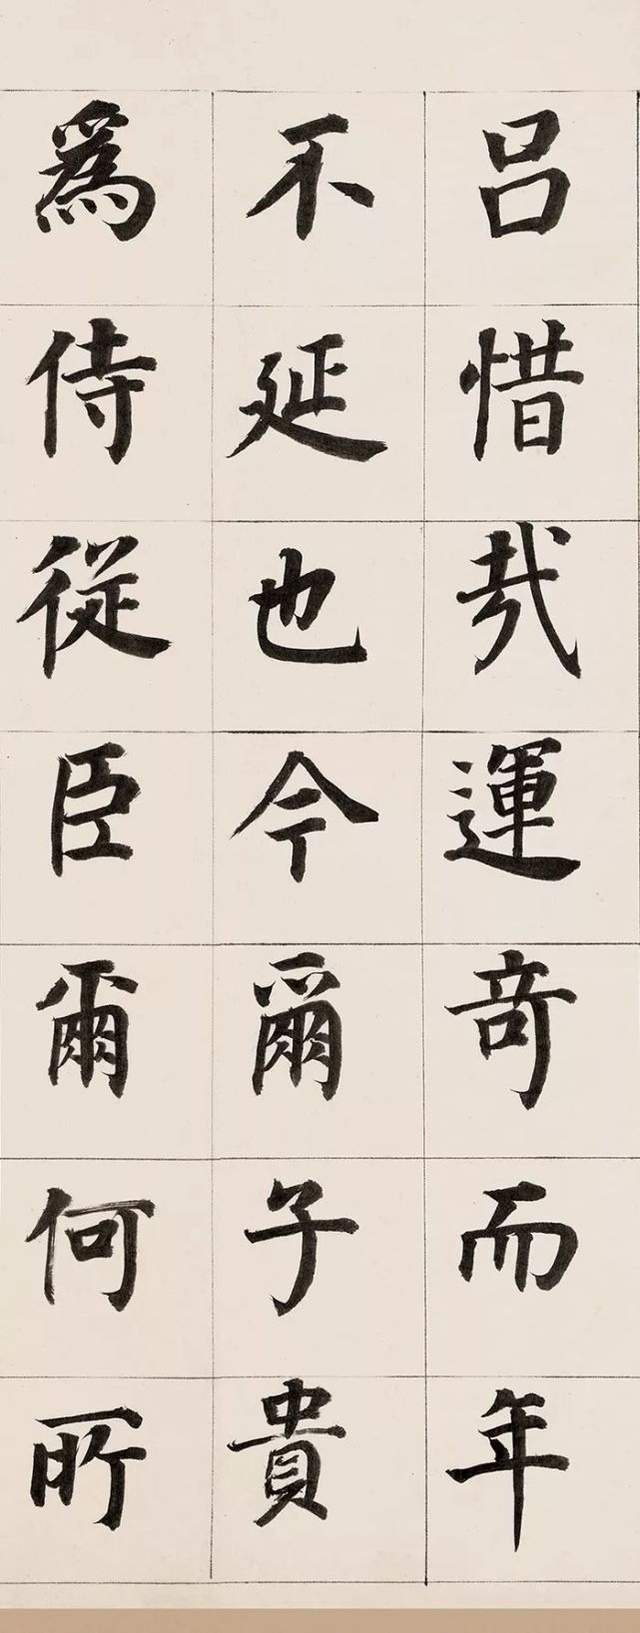 吕惜哉運奇而年
不延也今爾子貴
為侍從臣爾何所